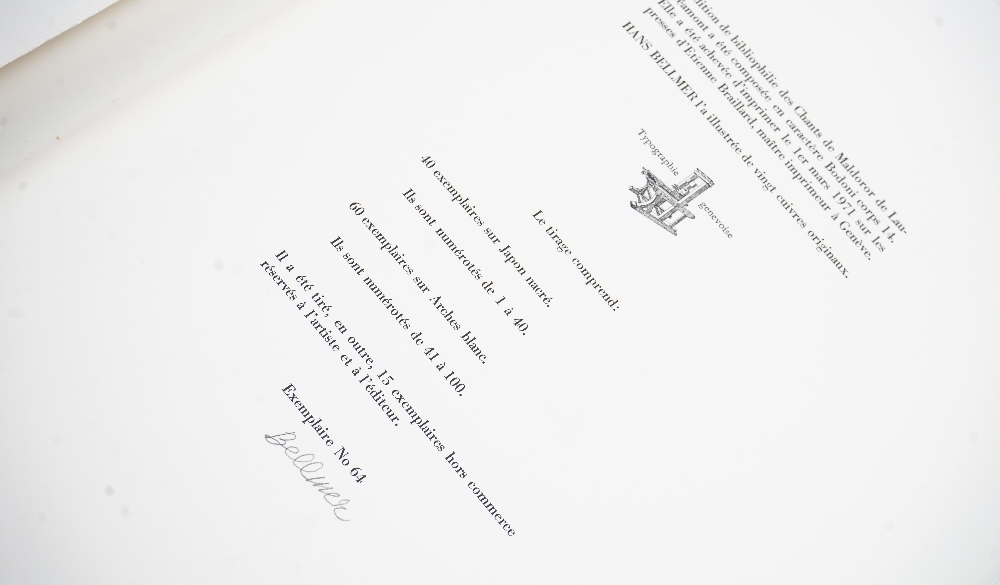 dition de bibliophilie des Chants de Maldoror de Lau-
éamont a été composée en caractère Bodoni corps 14.
Elle a été achevée d'imprimer le 1er mars 1971 sur les
presses d'Etienne Braillard, maître imprimeur à Genève.
HANS BELLMER l'a illustrée de vingt cuivres originaux.
Typographie
genevoise
Le tirage comprend:
40 exemplaires sur Japon nacré.
Ils sont numérotés de 1 à 40.
60 exemplaires sur Arches blanc.
Ils sont numérotés de 41 à 100.
Il a été tiré, en outre, 15 exemplaires hors commerce
réservés à l'artiste et à l'éditeur.
Exemplaire No 64
Bellmer